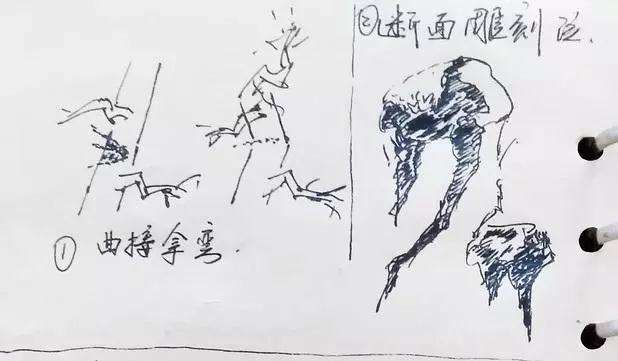 ① 曲接拿弯.
② 断面雕刻法.